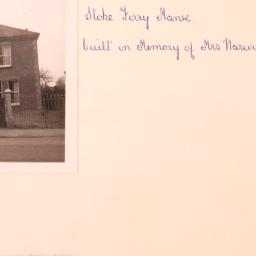 Stoke Ferry Manse.
built in Memory of Mrs